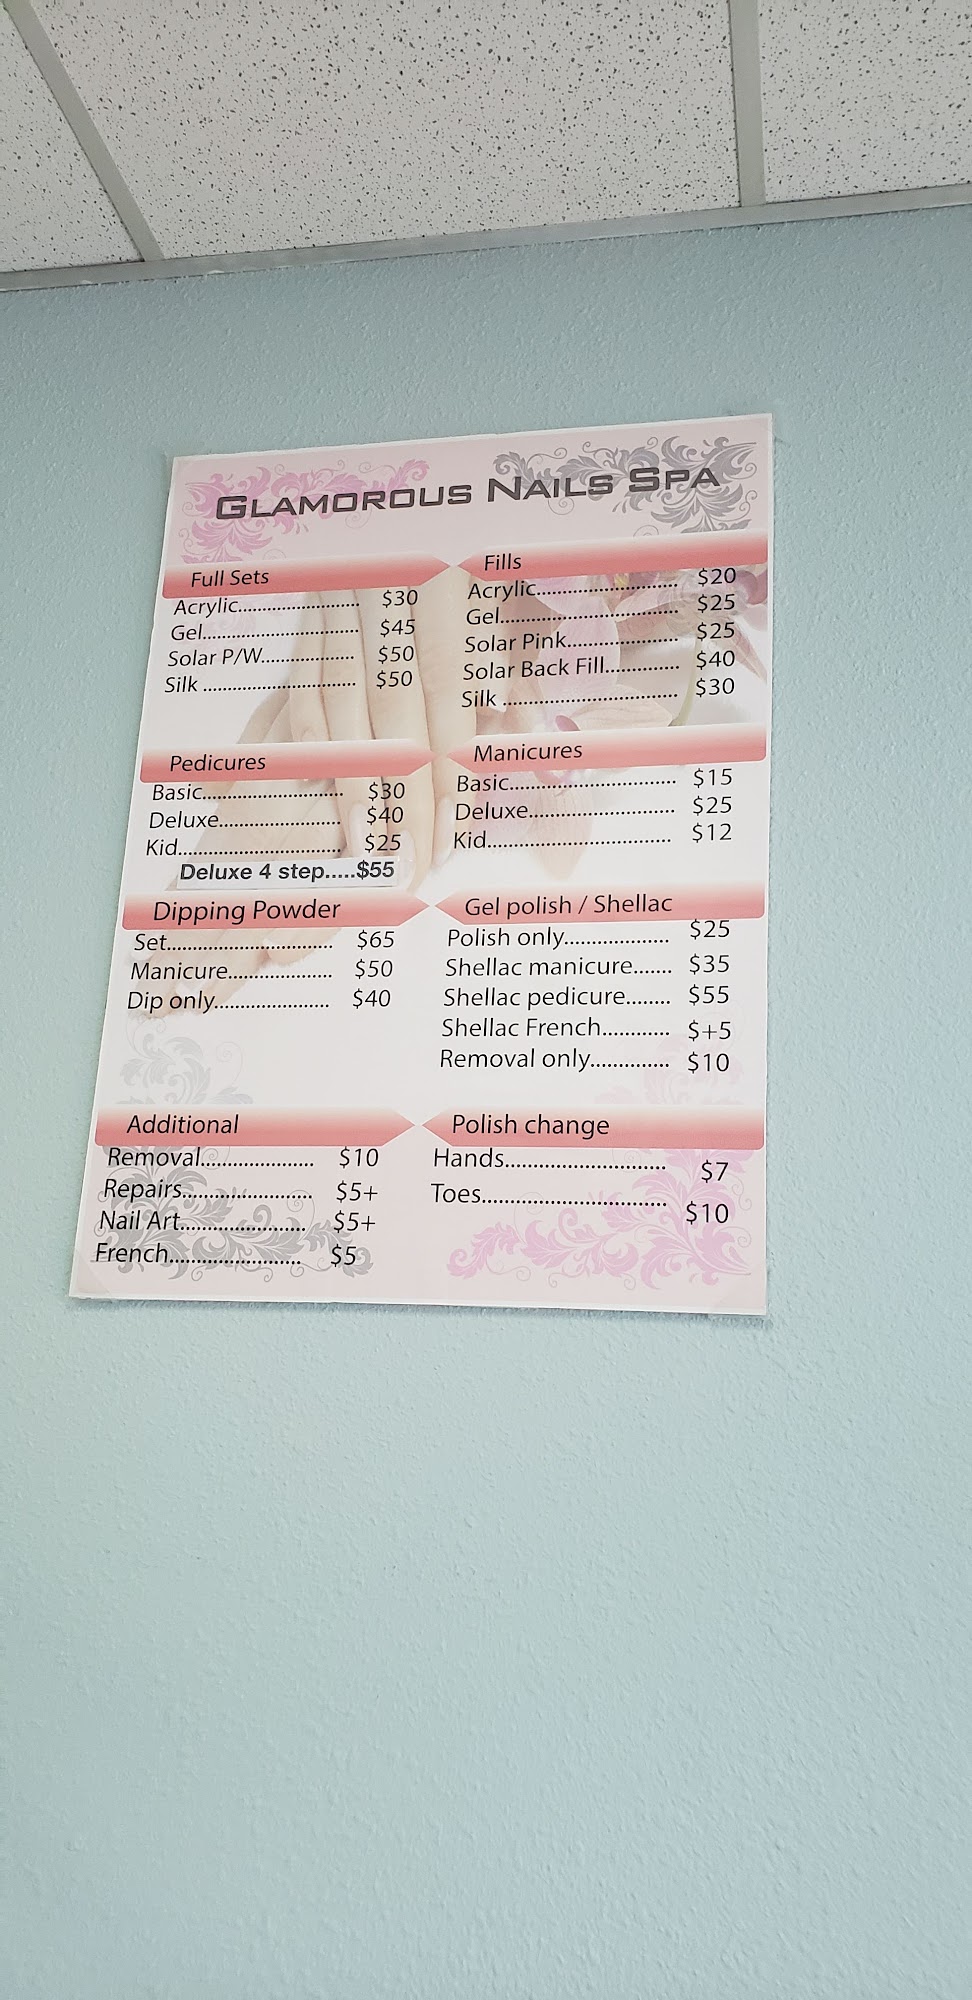 GLAMOROUS NAILS SPA
Full Sets
Acrylic.......................... $30
Gel................................. $45
Solar P/W.................... $50
Silk ................................. $50
Fills
Acrylic.............................. $20
Gel...................................... $25
Solar Pink........................ $25
Solar Back Fill............... $40
Silk ..................................... $30
Pedicures
Basic.............................. $30
Deluxe.......................... $40
Kid................................... $25
Deluxe 4 step.....$55
Manicures
Basic................................... $15
Deluxe............................... $25
Kid....................................... $12
Dipping Powder
Set................................... $65
Manicure...................... $50
Dip only........................ $40
Gel polish / Shellac
Polish only...................... $25
Shellac manicure....... $35
Shellac pedicure........ $55
Shellac French............ $+5
Removal only.............. $10
Additional
Removal...................... $10
Repairs......................... $5+
Nail Art........................ $5+
French......................... $5
Polish change
Hands............................... $7
Toes.................................... $10